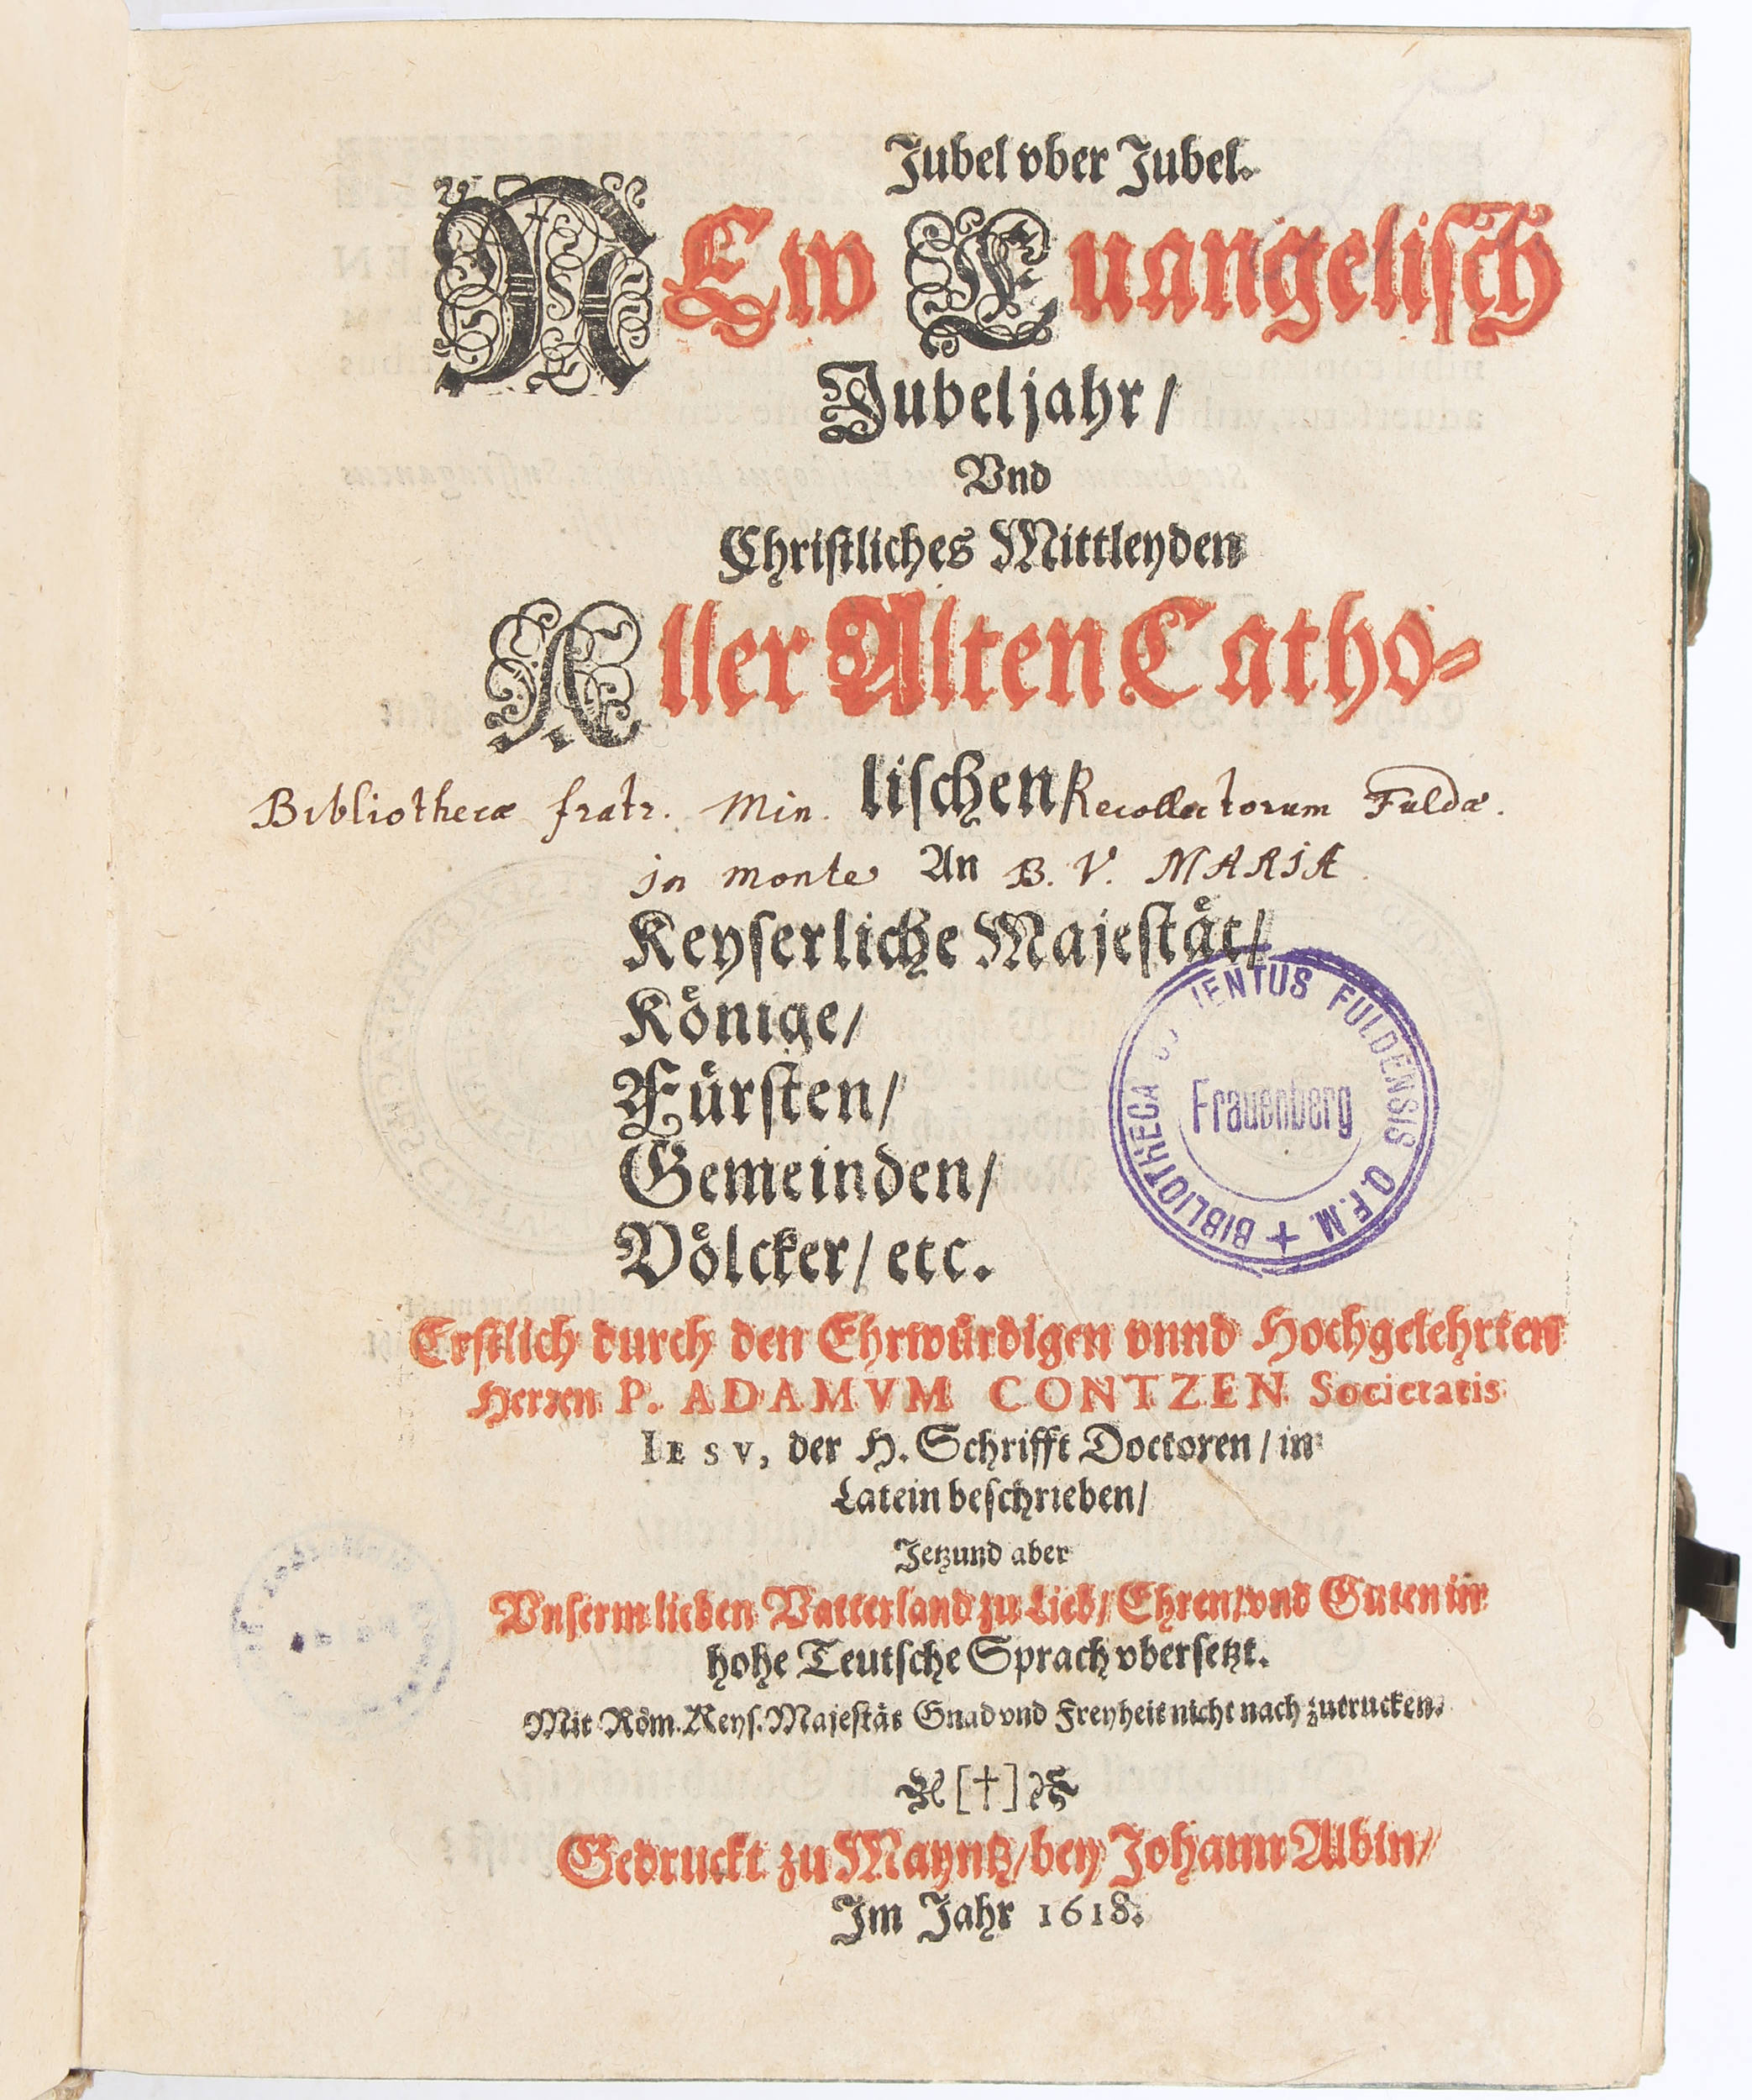 Jubel vber Jubel.
NEw Euangelisch
Jubeljahr/
Vnd
Christliches Mittleyden
Aller Alten Catho-
lischen/
Bibliothecæ fratr. Min. Recollectorum Fuldæ.
in monte B. V. MARIÆ.
An
Keyserliche Majeståt/
Kőnige/
Fůrsten/
Gemeinden/
Võlcker/ etc.
BIBLIOTHECA CONVENTUS FULDENSIS O.F.M. +
Frauenberg
Erstlich durch den Ehrwůrdigen vnnd Hochgelehrten
Herren P. ADAMVM CONTZEN Societatis
IESV, der H. Schrifft Doctoren/ in
Latein beschrieben/
Jetzund aber
Vnserm lieben Vatterland zu Lieb/ Ehren/ vnd Guten in
hohe Teutsche Sprach vbersetzt.
Mit Rőm. Keys. Majeståt Gnad vnd Freyheit nicht nach zutrucken.
[†]
Gedruckt zu Mayntz/ bey Johann Albin/
Im Jahr 1618.